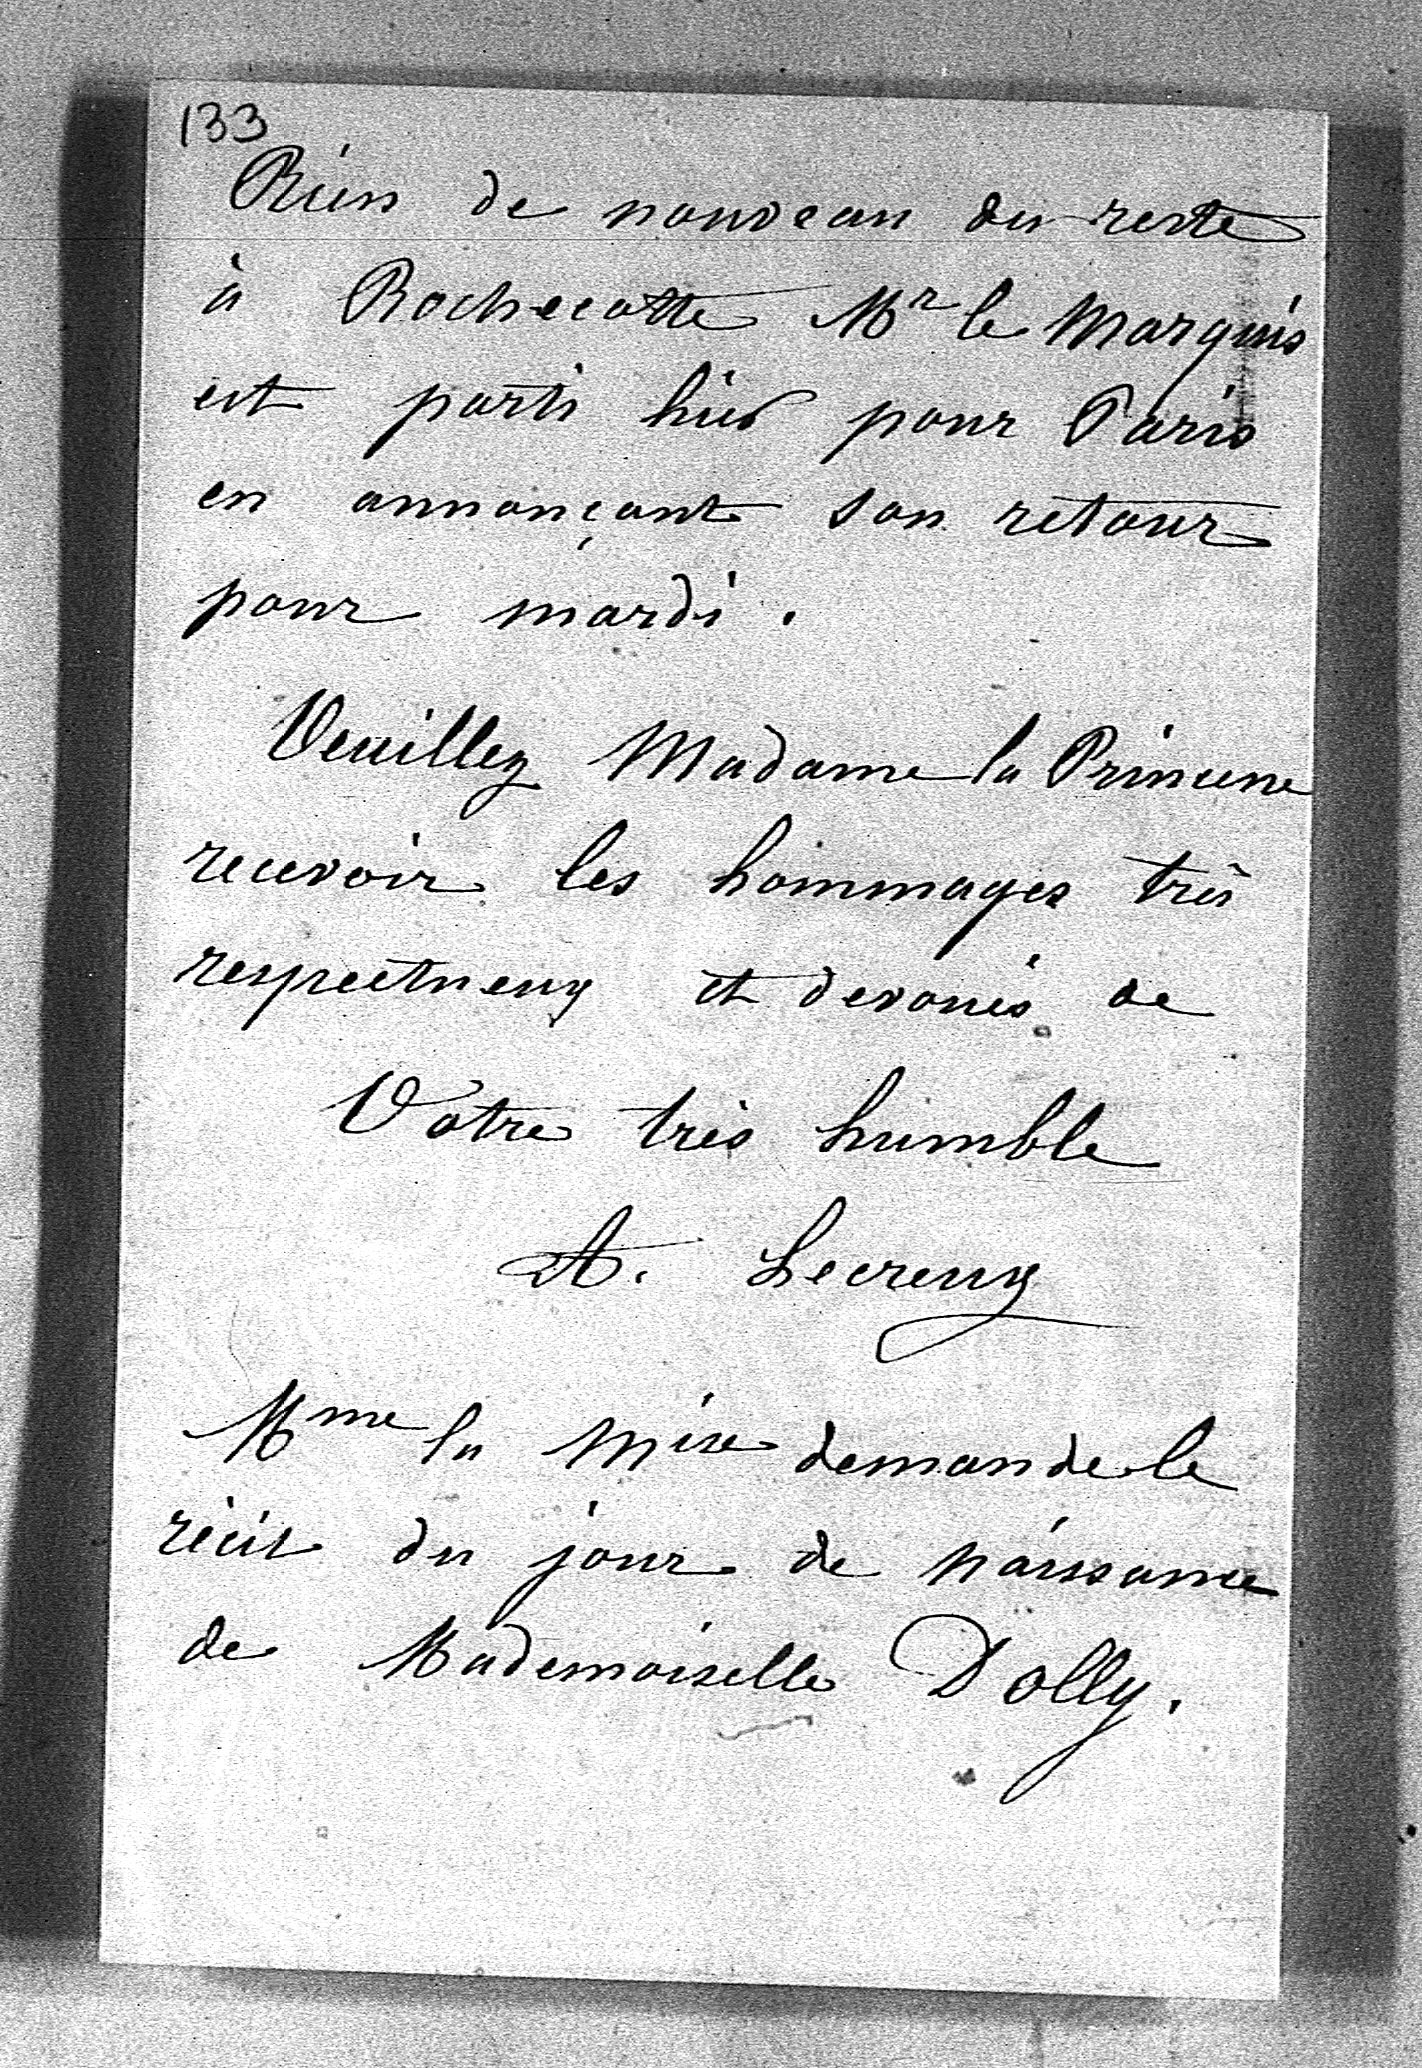 133
Rien de nouveau du reste
à Rochecotte Mr le Marquis
est parti hier pour Paris
en annonçant son retour
pour mardi.
Veuillez Madame la Princesse
recevoir les hommages très
respectueux et devoués de
Votre très humble
A. Lecreux
Mme la Mise demande le
récit du jour de naissance
de Mademoiselle Dolly.